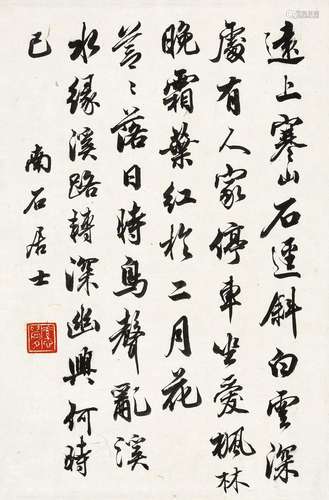 遠上寒山石逕斜白雲深
處有人家停車坐愛楓林
晚霜葉紅於二月花
蒼〻落日時鳥聲亂溪
水緣溪路轉深幽興何時
已
南石居士